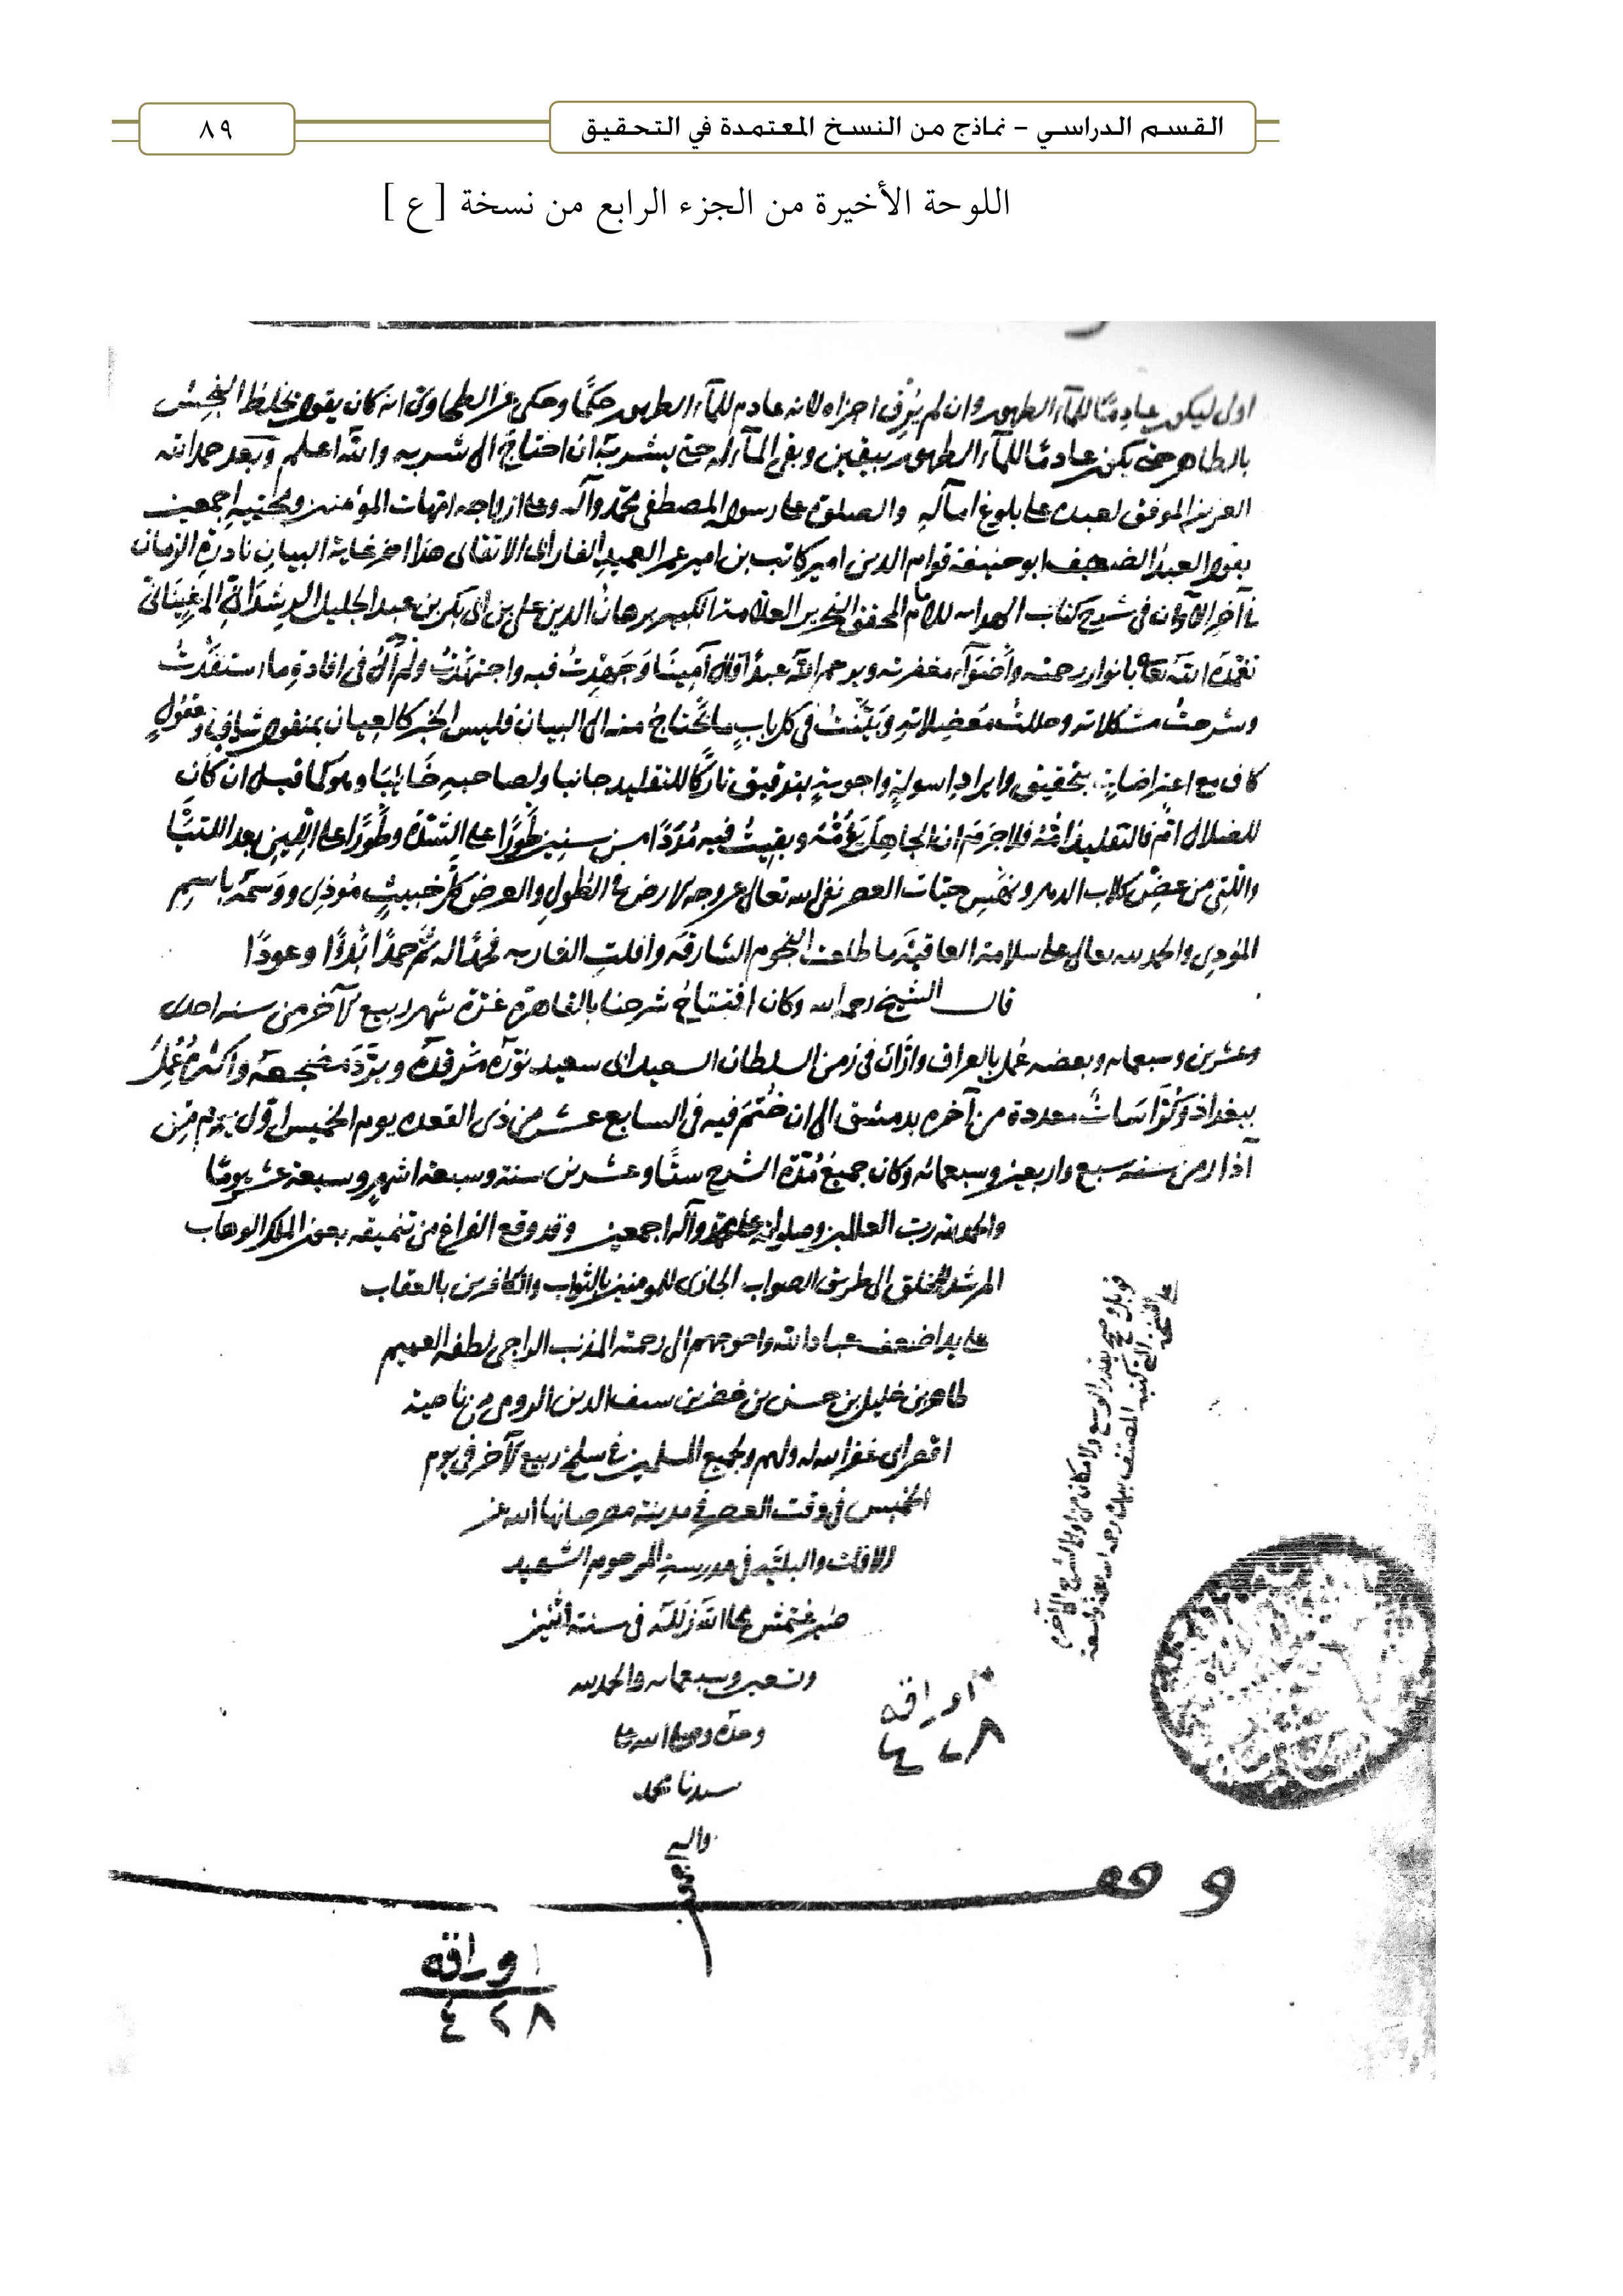 القسم الدراسي - نماذج من النسخ المعتمدة في التحقيق
٨٩
اللوحة الأخيرة من الجزء الرابع من نسخة [ع]
اولى ليكون عادمًا للمآء الطهور وان لم يُرِق اجزاه لانه عادم للمآء الطهور حكمًا وحكى عن الطحاوى انه كان يقول يخلط النجس
بالطاهر حتى يكون عادمًا للمآء الطهور بيقين وبقى المآء له حتى يشربه ان احتاج الى شربه والله اعلم وبعد حمد الله
العزيز الموفق لعبده على بلوغ آماله والصلوة على رسوله المصطفى محمد وآله وعلى ازواجه امهات المؤمنين ومحبيه اجمعين
يقول العبد الضعيف ابو حنيفة قوام الدين امير كاتب بن امير عمر العميد الفارابى الاتقانى هذا اخر غاية البيان نادرة الزمان
فى آخر الاوان فى شرح كتاب الهدايه للامام المحقق النحرير العلامة الكبير برهان الدين على بن ابى بكر بن عبد الجليل الرشدانى المرغينانى
تغمده الله تعالى بانوار رحمته واضوآء مغفرته ويرحم الله عبدًا قال آمينا وجهدت فيه واجتهدت ولم آل فى افادة ما استفدت
وشرحت مشكلاته وحللت معضلاته وبينت فى كل باب ما يحتاج منه الى البيان فليس الخبر كالعيان بمنقول شاف ومعقول
كاف مع اعتراضات بتحقيق وايراد اسولة واجوبة بتدقيق تاركًا للتقليد جانبا ولصاحبه خائبا وهو كما قيل ان كان
للضلال ام فالتقليد امه فلا جرم ان الجاهل يؤمه وبقيت فيه مددًا من سنين طورًا على الشدة وطورًا على اللين بعد اللتيا
واللتى من عض كلاب الدهر ونهس حيات العصر نقى الله تعالى عن وجه الارض فى الطول والعرض كل خبيث موذى ووسمه باسم
المؤذى والحمد لله تعالى على سلامة العاقبة ما طلعت النجوم الشارقه وافلت الغاربه فحمدًا له ثم حمدًا بدًا وعودًا
قال الشيخ رحمه الله وكان افتتاح شرحنا بالقاهرة غرة شهر ربيع الآخر من سنه احدى
وعشرين وسبعمايه وبعضه عمل بالعراق واران فى زمن السلطان السعيد ابى سعيد نور مرقده وبرد مضجعه واكثره عمل
ببغداد وكراسات معددة من آخره بدمشق الى ان ختم فيه فى السابع عشر من ذى القعده يوم الخميس اول يوم من
آذار من سنه سبع واربعين وسبعمائه وكان جميع مدة الشرح ستًا وعشرين سنة وسبعة اشهر وسبعة عشر يومًا
والحمد لله رب العالمين وصلواته على محمد وآله اجمعين وقد وقع الفراغ من تنميقه بعون الملك الوهاب
المرشد للخلق الى طريق الصواب الجازى للمومنين بالثواب والكافرين بالعقاب
على يد اضعف عباد الله واحوجهم الى رحمته المذنب الراجى لطفه العميم
طاهر بن خليل بن حسن بن خضر بن سيف الدين الرومى من ناحية
اقصراى غفر الله له ولهم ولجميع المسلمين فى سلخ ربيع الآخر فى يوم
الخميس فى وقت العصر فى مدينة مصر صانها الله عن
الافات والبليه فى مدرسة المرحوم الشهيد
صرغتمش محا الله زلله فى سنة اثنين
وتسعين وسبعمايه والحمد لله
وحده وصلى الله على
سيدنا محمد
واله
قوبل وصحح بقدر الوسع والامكان من اول الشرح الى آخره
على النسخة التى كتبه المصنف بيده رحمه الله رحمة واسعة
اوراقه
٤٢٨
وقف
اوراقه
٤٢٨